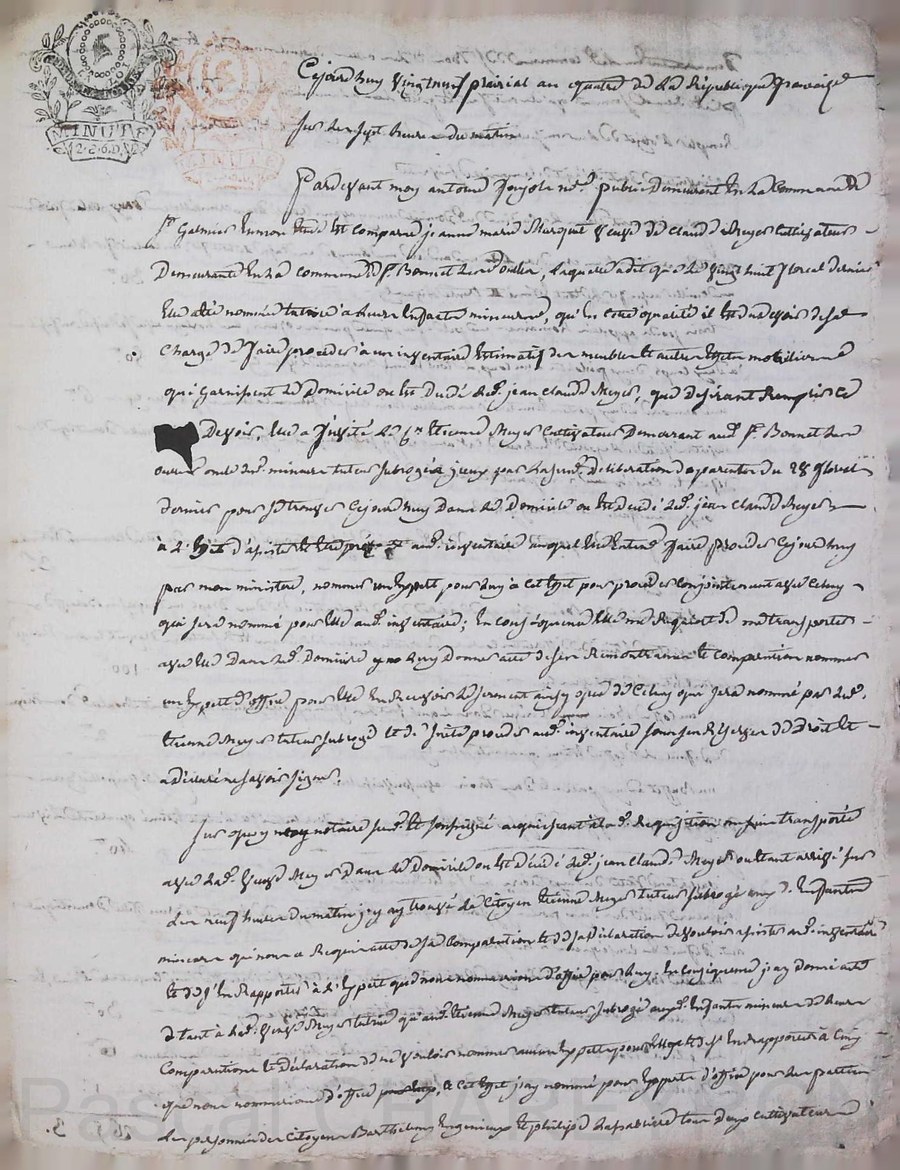 MINUTE
Cejourd'huy vingt neuf prairial an quatre de la République française
sur les sept heures du matin
Pardevant moy antoine notre public demeurant en la commune de
st Galmier soussigné est comparue jeanne marie veuve de claude Meyer cultivateur
Demeurante en la commune de st Bonnet les oulles, laquelle a dit que le vingt huit floreal dernier
Elle a été nommée tutrice à leurs enfants mineurs, qu'en cette qualité il est du devoir de sa
charge de faire proceder à un inventaire Estimatif des meubles et autres effets mobiliers
qui Garnissent le Domicile ou est Decédé led. jean claude Meyer, que desirant Remplir ce
Devoir, Elle a Invité le cn Etienne Meyer cultivateur Demeurant aud. st Bonnet les
oulles oncle des mineurs tuteur subrogé à yceux par lasusd. deliberation de parents du 28 floreal
dernier pour se trouver Cejourd'huy Dans le Domicile ou est decédé led. jean claude Meyer
à l'effet d'assister aud. inventaire auquel Elle Entend faire proceder Cejourd'huy
par mon ministere, nommer un Expert pour luy à cet effet pour proceder conjointement avec celuy
qui sera nommé pour Elle aud. inventaire; En consequence Elle me Requiert de me transporter
avec Elle Dans led. Domicile y luy Donner acte de ses Remontrances et comparution nommer
un Expert d'office pour Elle En Recevoir le serment ainsy que de Celuy qui sera nommé par led.
Etienne Meyer tuteur subrogé et de suite proceder aud. inventaire sous ses Reserves de Droit et
a déclaré ne savoir signer.
Sur quoy moy notaire susd. et soussigné acquiesçant à lad. Requisition me suis transporté
avec lad. veuve Meyer Dans le Domicile ou est Decédé led. jean claude Meyer ou étant arrivé sur
les neuf heures du matin j'y ay trouvé le Citoyen Etienne Meyer tuteur subrogé enfants
mineurs qui nous a Requis acte de sa Comparution et de sa Declaration de vouloir assister aud. inventaire
et de s'En Rapporter à l'Expert que nous nommerions d'office pour luy; En consequence j'ay donné acte
tant à lad. veuve Meyer tutrice qu'aud. Etienne Meyer tuteur subrogé auxd. Enfants mineurs de leurs
Comparutions et déclaration de ne vouloir nommer aucun Expert et de s'En rapporter à Ceux
que nous nommerions d'office, à cet effet j'ay nommé pour Experts d'office pour les parties
les personnes des Citoyens Barthelemy et philipe tous deux cultivateurs
Pascal